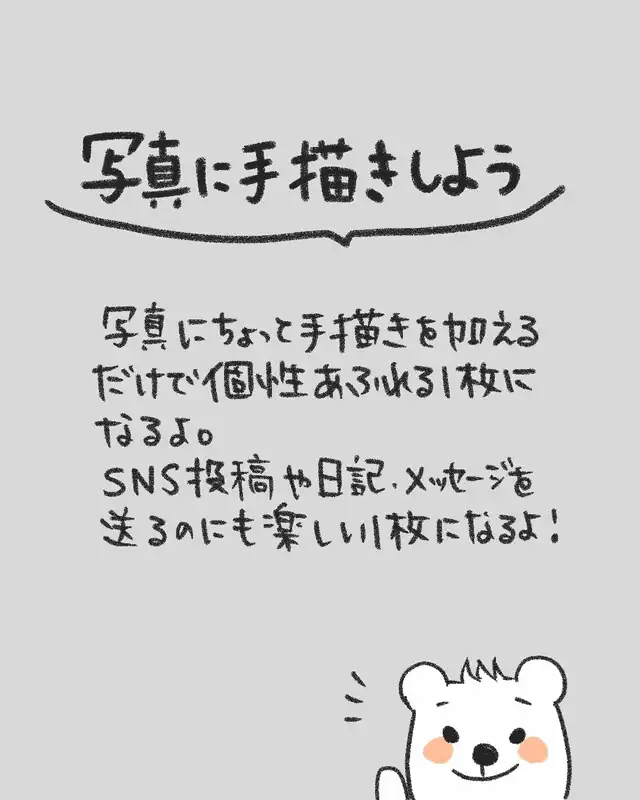 写真に手描きしよう
写真にちょっと手描きを加える
だけで個性あふれる1枚に
なるよ。
SNS投稿や日記、メッセージを
送るのにも楽しい1枚になるよ!